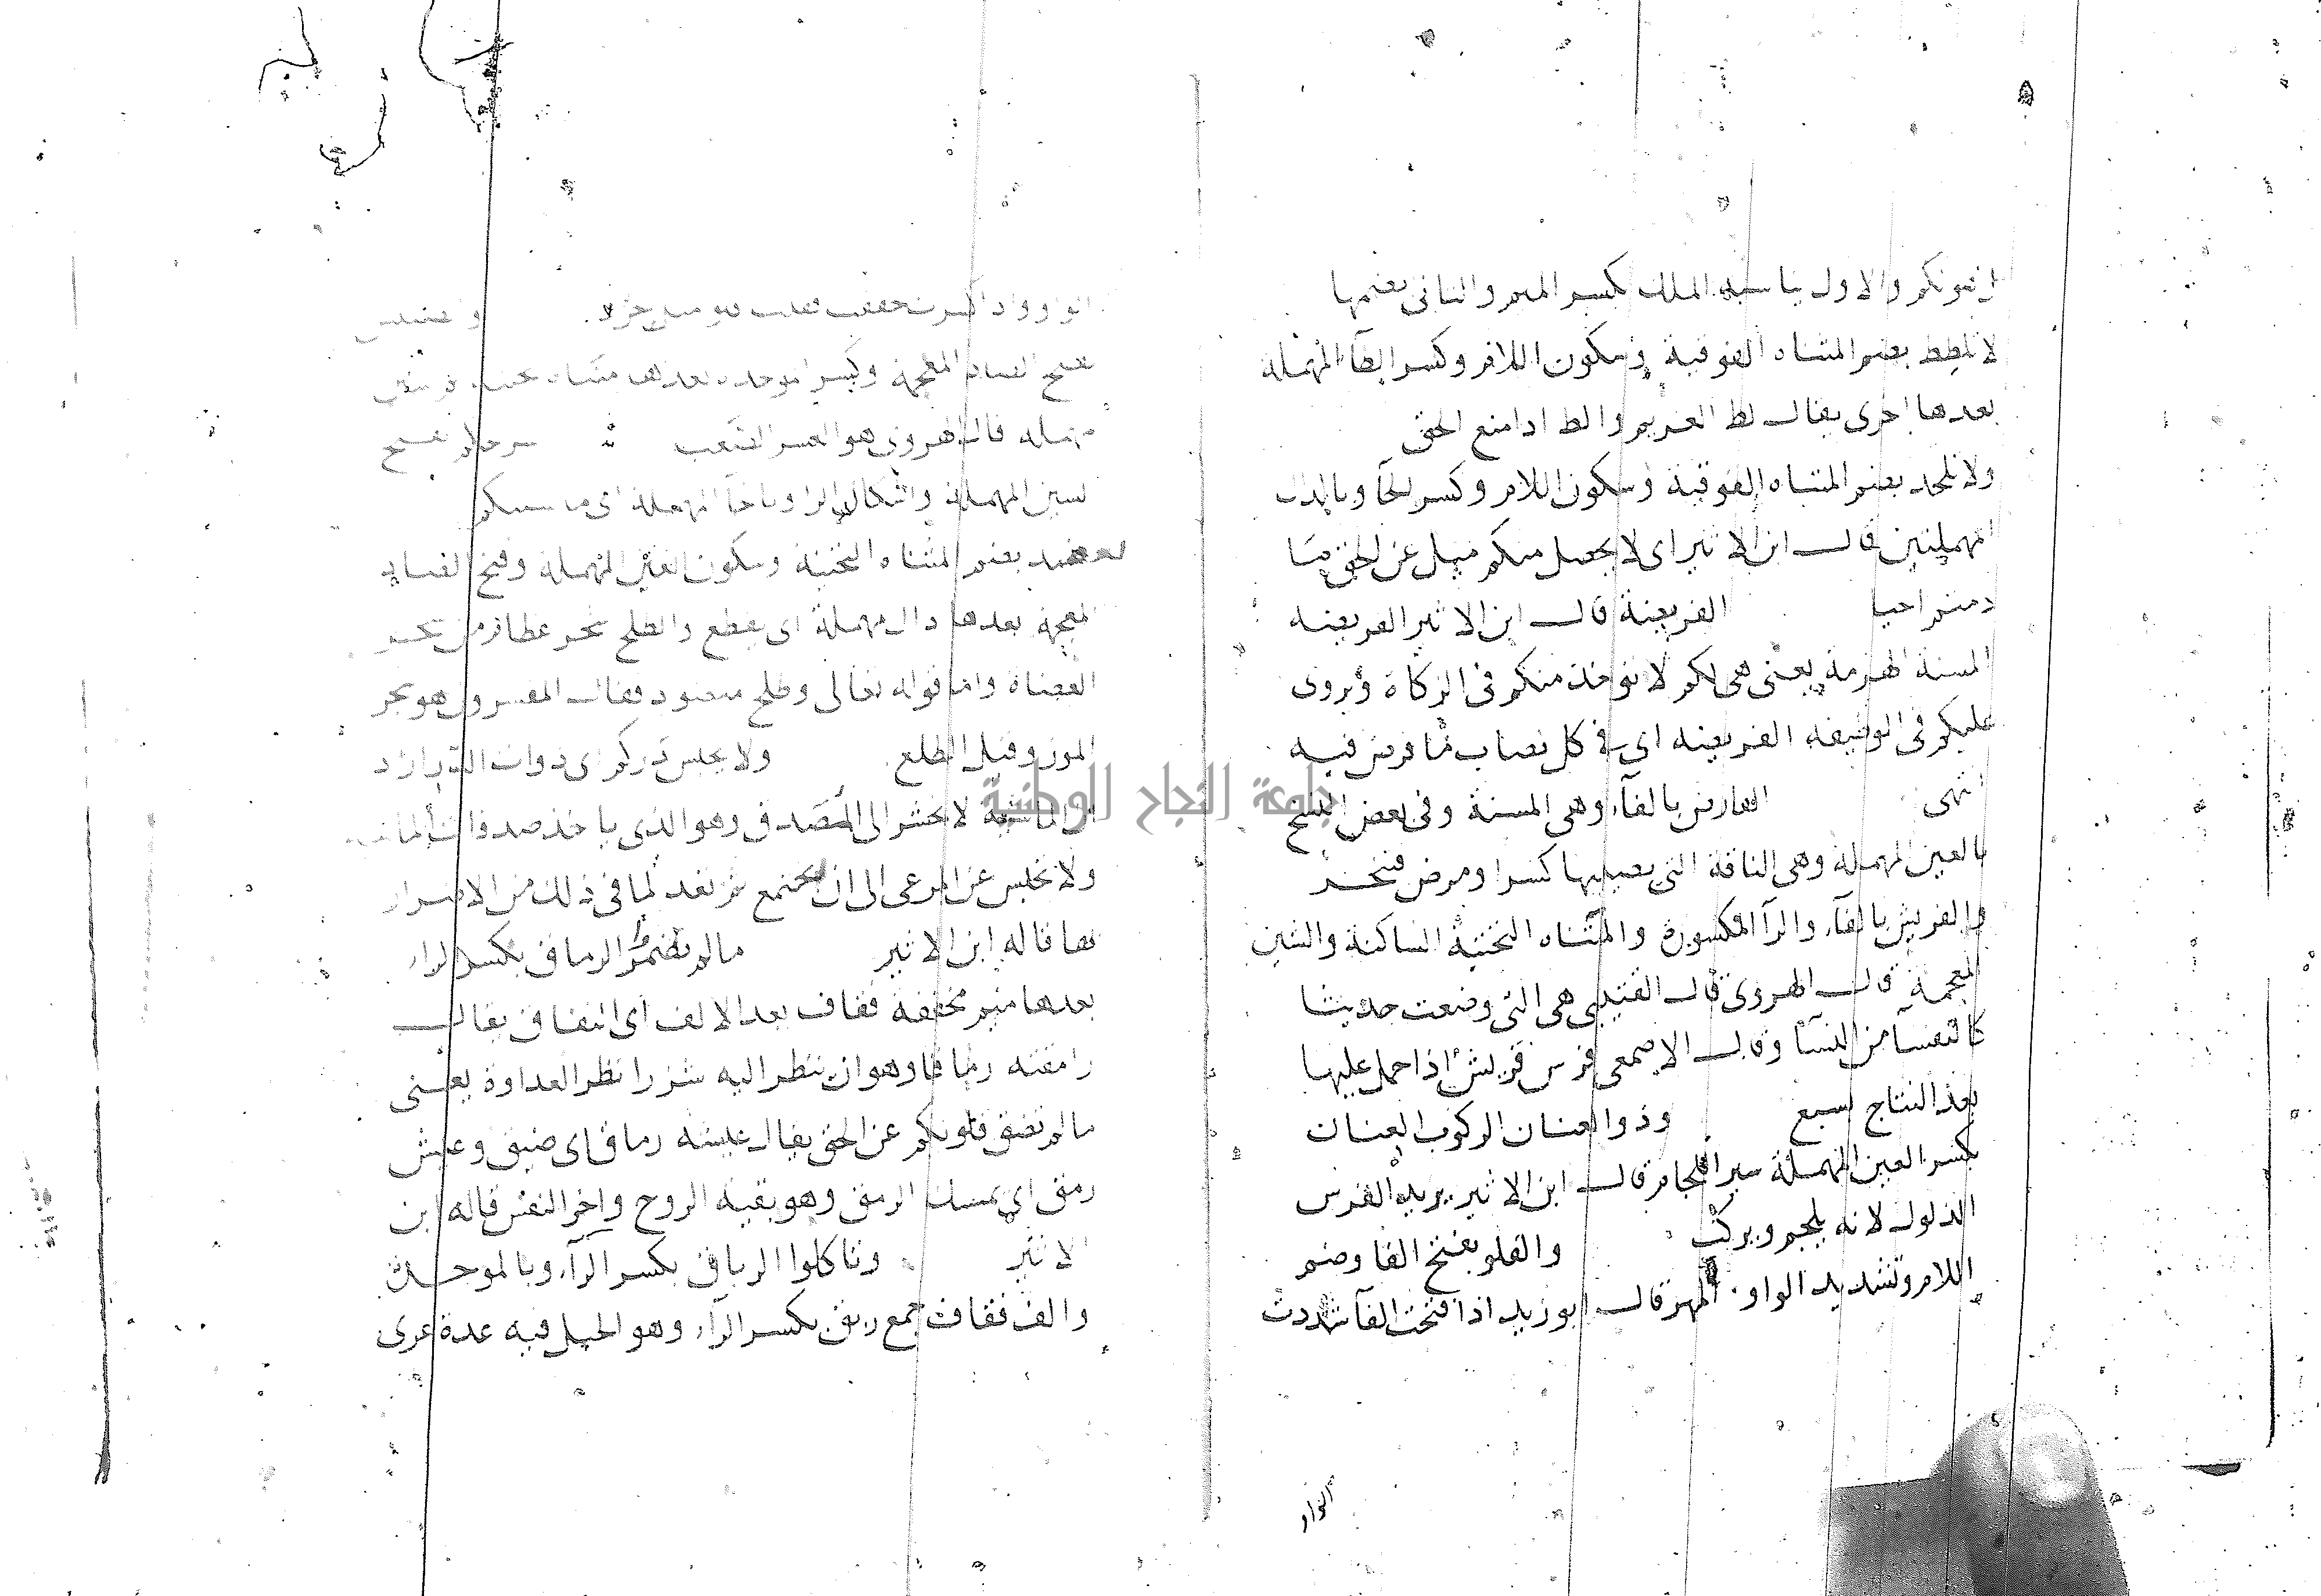 والاول بالملك بكسر الميم والثانى بضمها
لا تلطط بضم المثناه الفوقية وسكون اللام وكسر الطآء المهمله
بعدها اخرى يقال لط الغريم والط اذا منع الحق
ولا تلحد بضم المثناه الفوقية وسكون اللام وكسر الحآ وبالدال
المهملتين قال ابن الاثير اى لا يحصل منكم ميل عن الحق ما
دمتم احيا الفريضة قال ابن الاثير الفريضه
المسنة الهرمة يعنى هى لكم لا تؤخذ منكم فى الزكاة ويروى
عليكم فى الوظيفه الفريضه اى فى كل نصاب ما فرض فيه
انتهى الفارض بالفآء وهى المسنة وفى بعض النسخ
بالعين المهملة وهى الناقة التى يصيبها كسر او مرض فتنحر
والفريش بالفآء والرآ المكسورة والمثناه التحتية الساكنة والشين
المعجمة قال الهروى قال القتيبى هى التى وضعت حديثا
كالنفسآ من النسآ وقال الاصمعى فرس فريش اذا حمل عليها
بعد النتاج لسبع وذو العنان الركوب العنان
بكسر العين المهملة سير اللجام قال ابن الاثير يريد الفرس
الذلول لانه يلجم ويركب والفلو بفتح الفا وضم
اللام وتشديد الواو المهر قال ابو زيد اذا فتحت الفآ شددت
الواو
الواو واذا كسرت خففت فقلت فلو مثل جرو
بفتح الضاد المعجمة وكسر الموحده بعدها مثناه تحتيه
مهمله قال الهروى هو العسر الصعب سرحكم بفتح
السين المهملة واسكان الرا وبالحآ المهملة اى
يعضد بضم المثناه التحتية وسكون العين المهملة وفتح الضاد
المعجمة بعدها دال مهملة اى يقطع والطلح شجر عظام من شجر
العضاه واما قوله تعالى وطلح منضود فقال المفسرون هو شجر
الموز وقيل الطلع ولا يحبس دركم اى ذوات الدر اراد
ان الماشية لا تحشر الى المصدق وهو الذى ياخذ صدقات الماشيه
ولا تحبس عن المرعى الى ان تجتمع ثم تعد لما فى ذلك من الاضرار
بها قاله ابن الاثير مالم تضمروا الرماق بكسر الراء
بعدها ميم مخففة فقاف بعد الالف اى النفاق يقال
رامقته رماقا وهو ان تنظر اليه شزرا نظر العداوة يعنى
مالم تضق قلوبكم عن الحق يقال عيشه رماق اى ضيق وعيش
رمق اى يمسك الرمق وهو بقية الروح واخر النفس قاله ابن
الاثير وتاكلوا الرباق بكسر الرآء وبالموحدة
والف فقاف جمع ربق بكسر الرآء وهو الحبل فيه عدة عرى
جامعة النجاح الوطنية